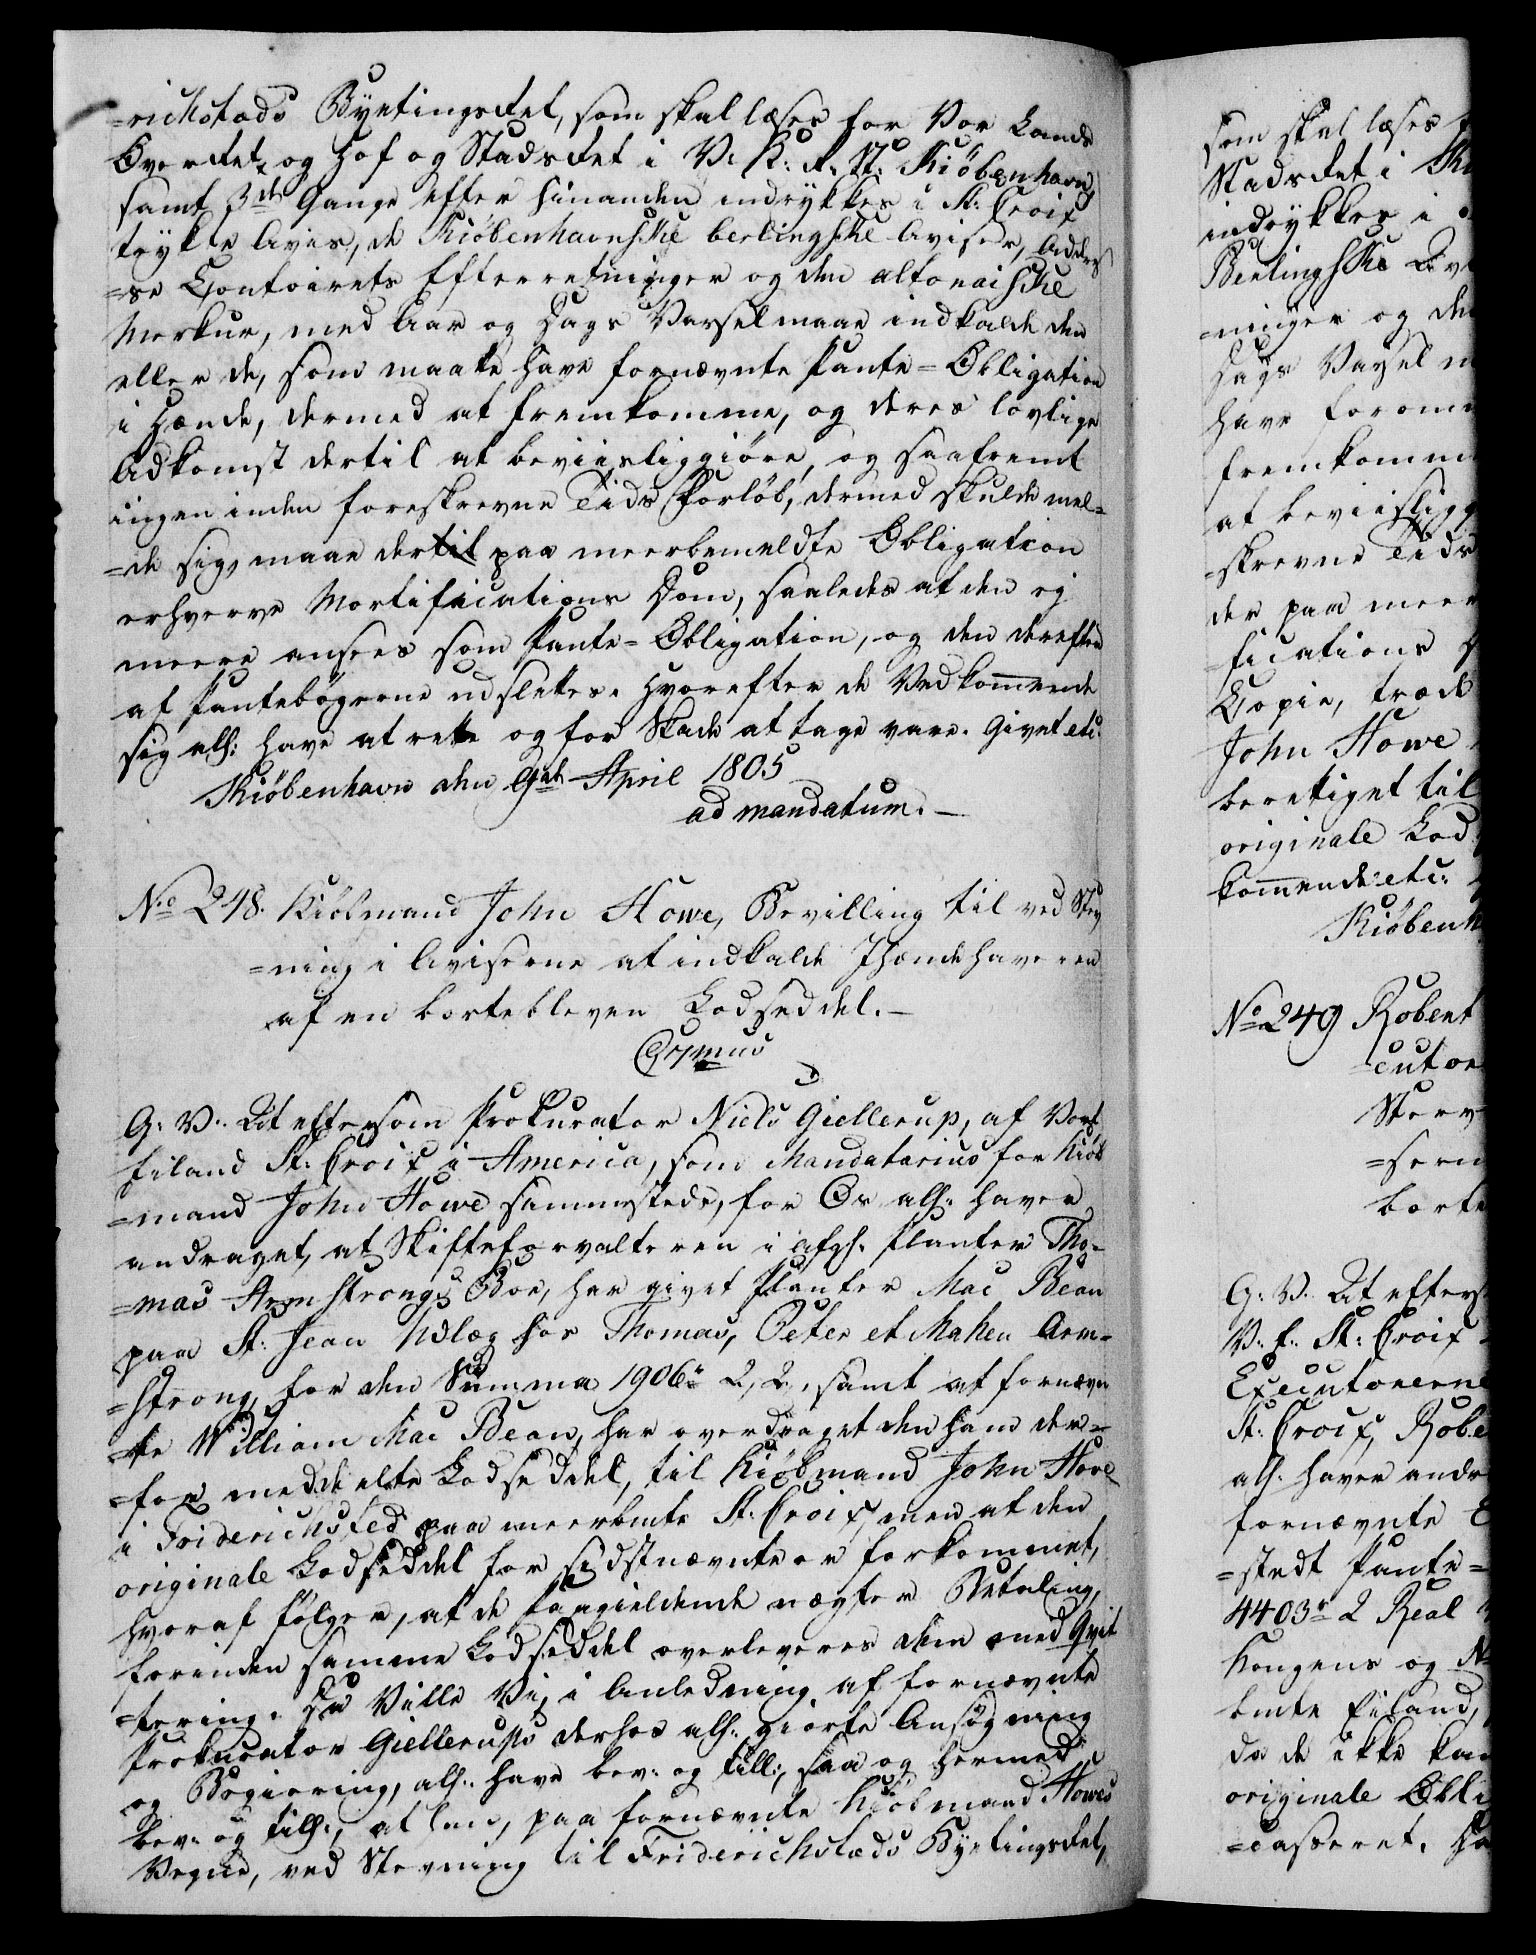 =richstads Byetingsret, som skal læses for Vor Lands
Overret, og Hof og Stadsret i V: K: R: St: Kiöbenhavn,
samt 3de Gange efter hinanden indrykkes i St: Croix
trykte Avis, de Kiöbenhavnske berlingske Aviser, Addres
=se Contoirets Efterretninger og den altonaiske
Merkur, med Aar og Dags Varsel maae indkalde den
eller de, som maatte have fornævnte Pante=Obligation
i Hænde, dermed at fremkomme, og deres lovlige
Adkomst dertil at beviisliggiöre, og saafremt
ingen inden foreskrevne Tids Forløb, dermed skulde mel=
=de sig, maae dertil paa meerbemeldte Obligation
erhverve Mortifications Dom, saaledes at den ej
meere ansees som Pante=Obligation, og den derefter
af Pantebögerne udslettes. Hvorefter de Vedkommende
sig alh: have at rette og for Skade at tage vare. Givet etc:
Kiöbenhavn den 9de April 1805
ad mandatum. —
No 248. Kiöbmand John Howe, Bevilling til ved Stev
=ning i Aviserne at indkalde Ihændehaveren
af en bortebleven Lodseddel. —
G: V: At eftersom Prokurator Niels Giellerup, af Vort
Eiland St: Croix i America, som Mandatarius for Kiöb
=mand John Howe sammestede, for Os alh: haver
andraget, at Skifteforvalteren i afg: Planter Tho=
=mas Armstrongs Boe, har givet Planter Mac Bean
paa St: Jean Udlæg hos Thomas, Peter et Mahen Arm=
=strong, for den Summa 1906r 2, 2, samt at fornævn
=te William Mac Bean, har overdraget den ham der=
=for meddeelte Lodseddel, til Kiöbmand John Howe
i Friderichsted paa meerbmte St: Croix, men at den
originale Lodseddel for sidstnævnte er forkommet,
hvoraf fölger, at de paagieldende nægter Betaling,
forinden samme Lodseddel overleveres dem med Qvit
=tering. Da Ville Vi, i Anledning af fornævnte
Prokurator Giellerups derhos alh: giorte Ansögning
og Begiering, alh: have bev: og till:, saa og hermed
bev: og till:, at han, paa fornævnte Kiöbmand Howes
Vegne, ved Stevning til Friderichstæds Byetingsret,
som skal læses
Stadsret i
indrykkes i
Berlingske
=ninger og den
Dags Varsel
have
fremkomme
at beviislig
=skrevne Tids
der paa meer
=fications
Copie, træde
John Howe
berettiget til
originale Lod
kommende etc:
Kiöbenh
No 249 Robert
=cutor
Stev
=sern
borte
G: V: At efters
V: E: St: Croix
Executorerne
St: Croix, Robe
alh: haver andr
fornævnte
=stedt Pante=
4403r 2 Real
Kongens og
bmte Eiland,
da de ikke kan
originale Obli
=casseret. Da